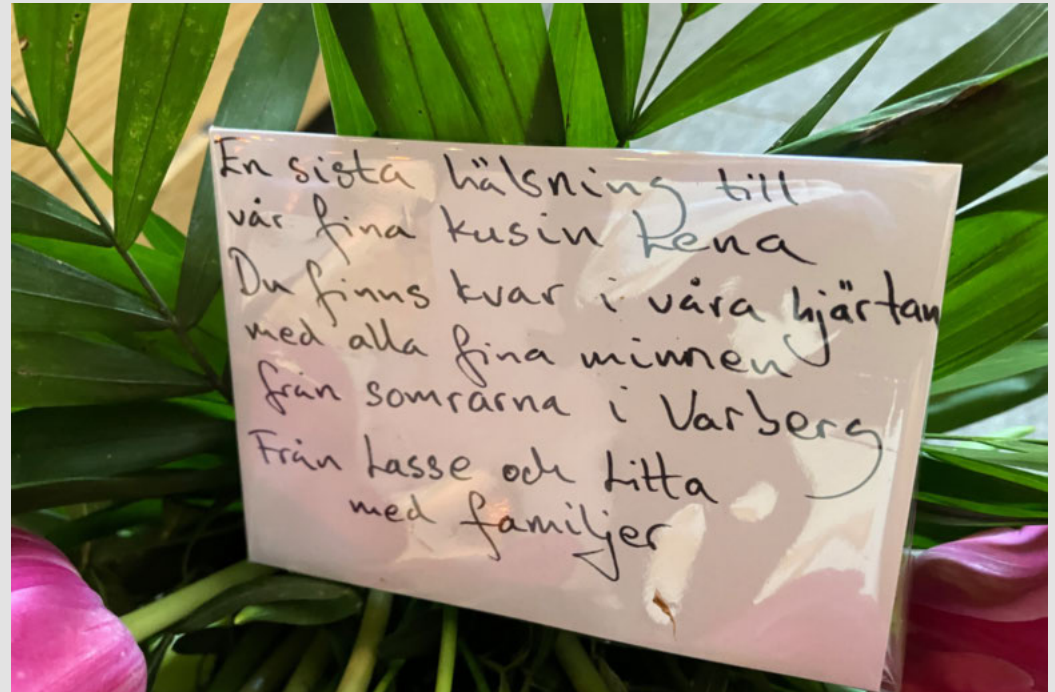 En sista hälsning till
vår fina kusin Lena
Du finns kvar i våra hjärtan
med alla fina minnen
från somrarna i Varberg
Från Lasse och Litta
med familjer